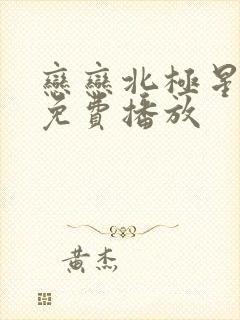 戀戀北極星
免費播放
黃杰